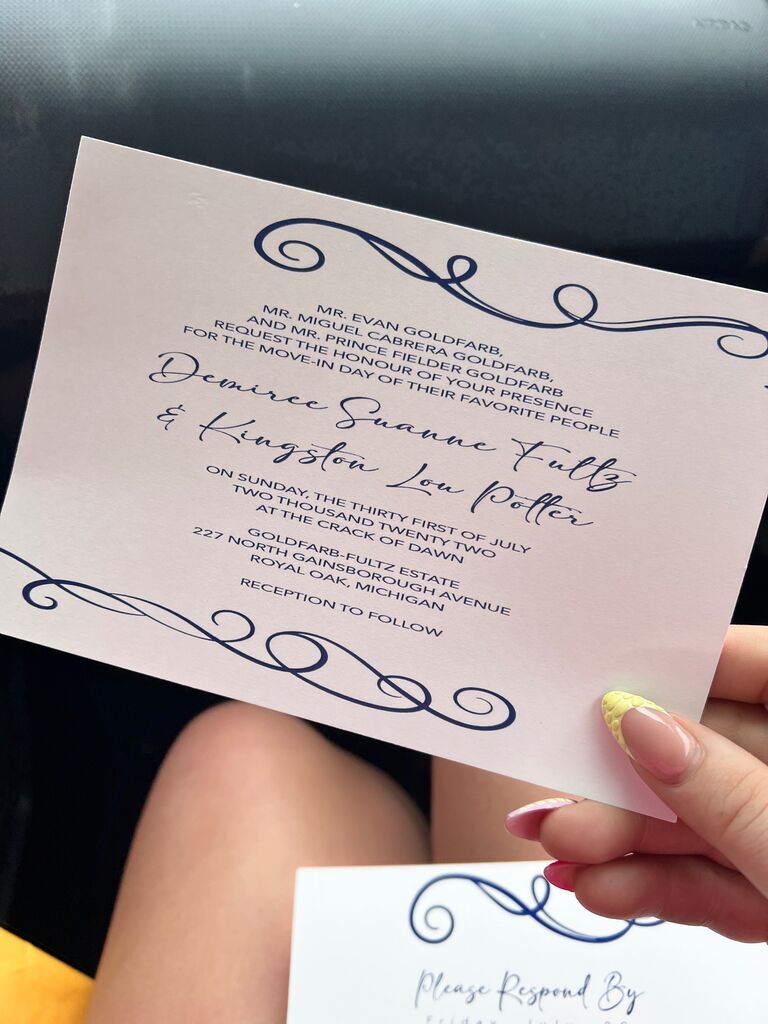 MR. EVAN GOLDFARB,
MR. MIGUEL CABRERA GOLDFARB,
AND MR. PRINCE FIELDER GOLDFARB
REQUEST THE HONOUR OF YOUR PRESENCE
FOR THE MOVE-IN DAY OF THEIR FAVORITE PEOPLE
Demiree Suanne Fultz
& Kingston Lou Potter
ON SUNDAY, THE THIRTY FIRST OF JULY
TWO THOUSAND TWENTY TWO
AT THE CRACK OF DAWN
GOLDFARB-FULTZ ESTATE
227 NORTH GAINSBOROUGH AVENUE
ROYAL OAK, MICHIGAN
RECEPTION TO FOLLOW
Please Respond By